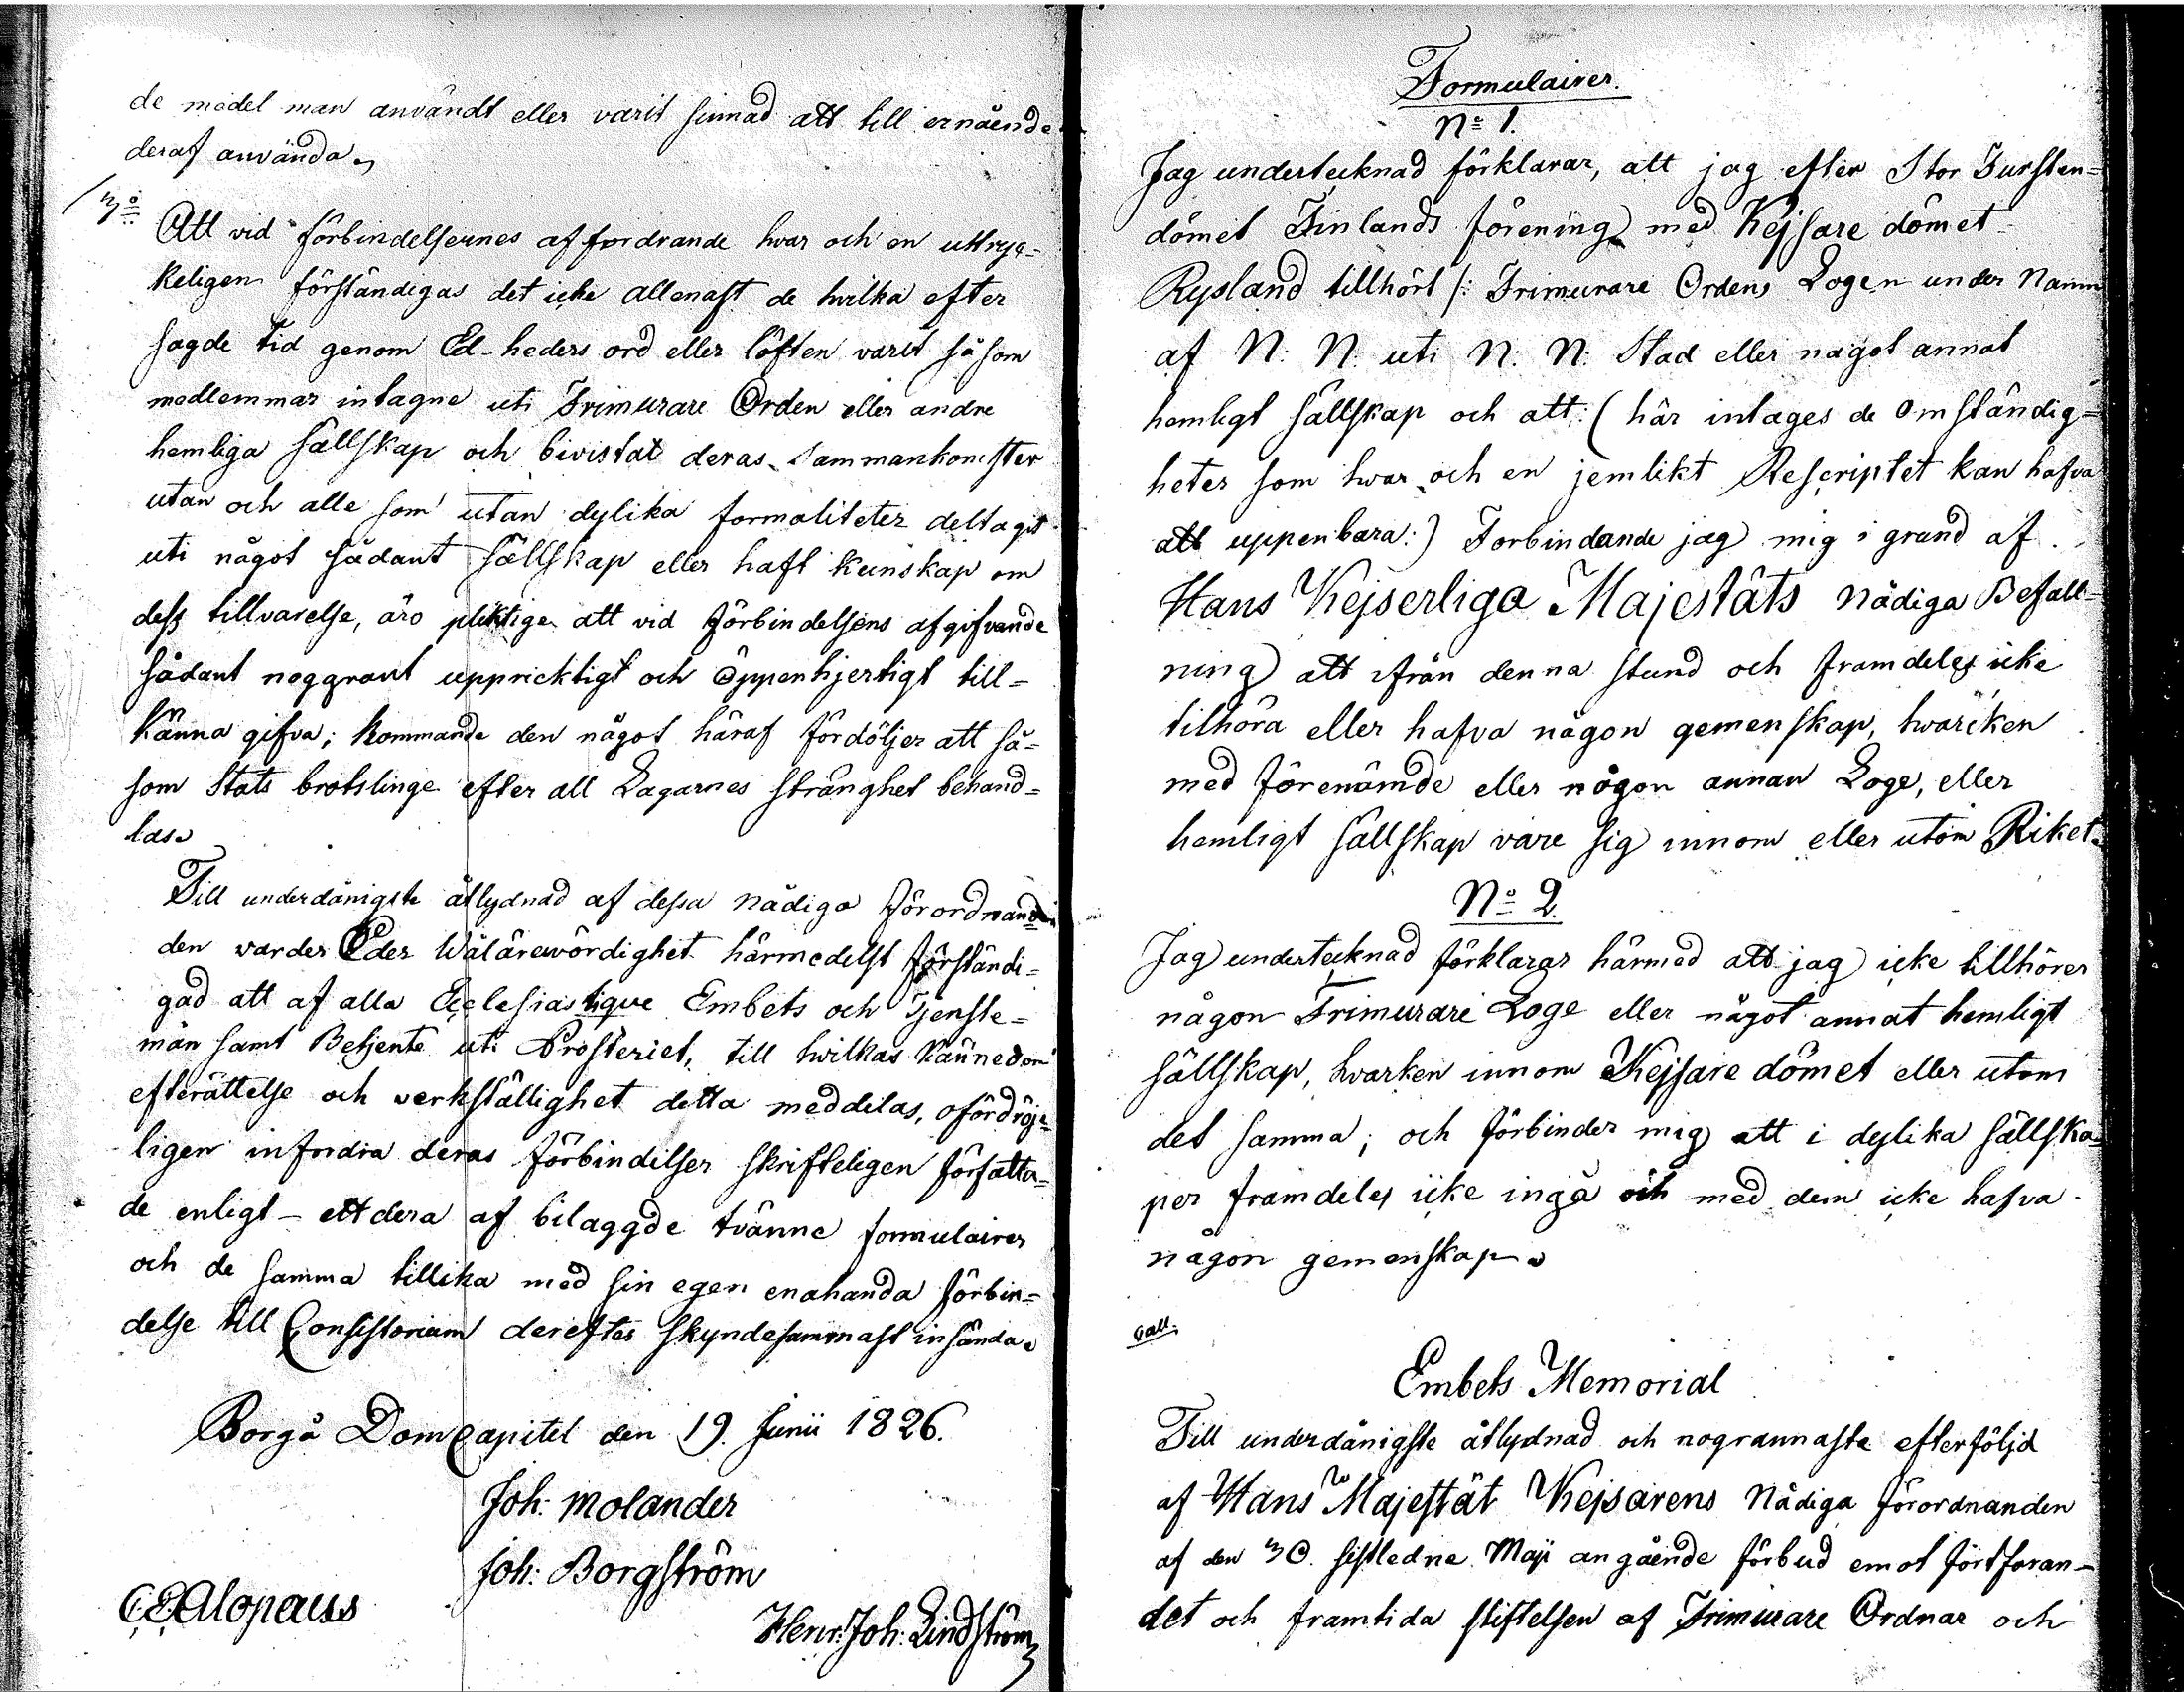 de medel man användt eller varit sinnad att till ernående
deraf använda.
3:o
Att vid förbindelsernes affordrande hvar och en uttryc-
keligen förständigas det icke allenast de hvilka efter
sagde tid genom Ed-heders ord eller löften varit såsom
medlemmar intagne uti Frimurare Orden eller andre
hemliga sällskap och bivistat deras Sammankomster
utan och alle som utan dylika formaliteter deltagit
uti något sådant sällskap eller haft kunskap om
dess tillvarelse, äro pliktige att vid förbindelsens afgifvande
sådant noggrant uppricktigt och Öppenhjertigt till-
känna gifva; kommande den något häraf fördöljer att så-
som Stats brotslinge efter all Lagarnes stränghet behand-
las.
Till underdånigste åtlydnad af dessa nådiga förordnan
den varder Eder Wälärewördighet härmedelst förständi-
gad att af alla Ecclesiastique Embets och Tjenste-
män samt Betjente uti Prosteriet, till hvilkas kännedom
efterättelse och verkställighet detta meddelas, ofördröje-
ligen infordra deras förbindelser skrifteligen författa-
de enligt - ettdera af bilaggde tvänne formulairer
och de samma tillika med sin egen enahanda förbin-
delse till Consistorium derefter skyndesammast insända.
Borgå Domcapitel den 19. Junii 1826.
Joh: Molander
Joh: Borgström
C:E:Alopæus
Henr: Joh: Lindström
Formulairer.
No 1.
Jag undertecknad förklarar, att jag efter Stor Fursten-
dömet Finlands förening med Kejsare dömet
Rysland tillhört /: Frimurare Ordens Logen under Namn
af N: N: uti N: N: Stad eller något annat
hemligt sällskap och att: ( här intages de Omständig-
heter som hvar och en jemlikt Rescriptet kan hafva
att uppenbara:) Forbindande jag mig i grund af
Hans Kejserliga Majestäts nådiga Befall-
ning att ifrån denna stund och framdeles icke
tilhöra eller hafva någon gemenskap, hwarcken
med förenämde eller någon annan Loge, eller
hemligt sällskap vare sig innom eller utom Riket.
No 2.
Jag undertecknad förklarar härmed att jag icke tillhörer
någon Frimurare Loge eller något annat hemligt
sällskap, hvarken innom Kejsare dömet eller utom
det samma; och förbinder mig att i dylika sällska-
per framdeles icke ingå och med dem icke hafva
någon gemenskap.
Embets Memorial
Till underdånigste åtlydnad och nogrannaste efterföljd
af Hans Majestät Kejsarens Nådiga förordnanden
af den 30. sistledne Maji angående förbud emot fortfaran-
det och framtida stiftelsen af Frimurare Ordnar och